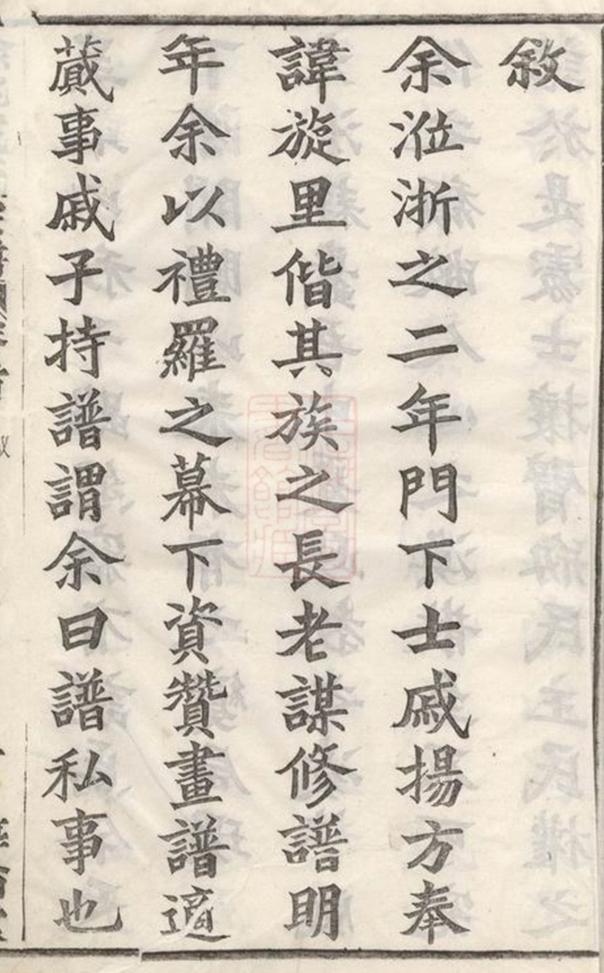 敘
余涖浙之二年門下士戚揚方奉
諱旋里偕其族之長老謀修譜明
年余以禮羅之幕下資贊畫譜適
蕆事戚子持譜謂余曰譜私事也